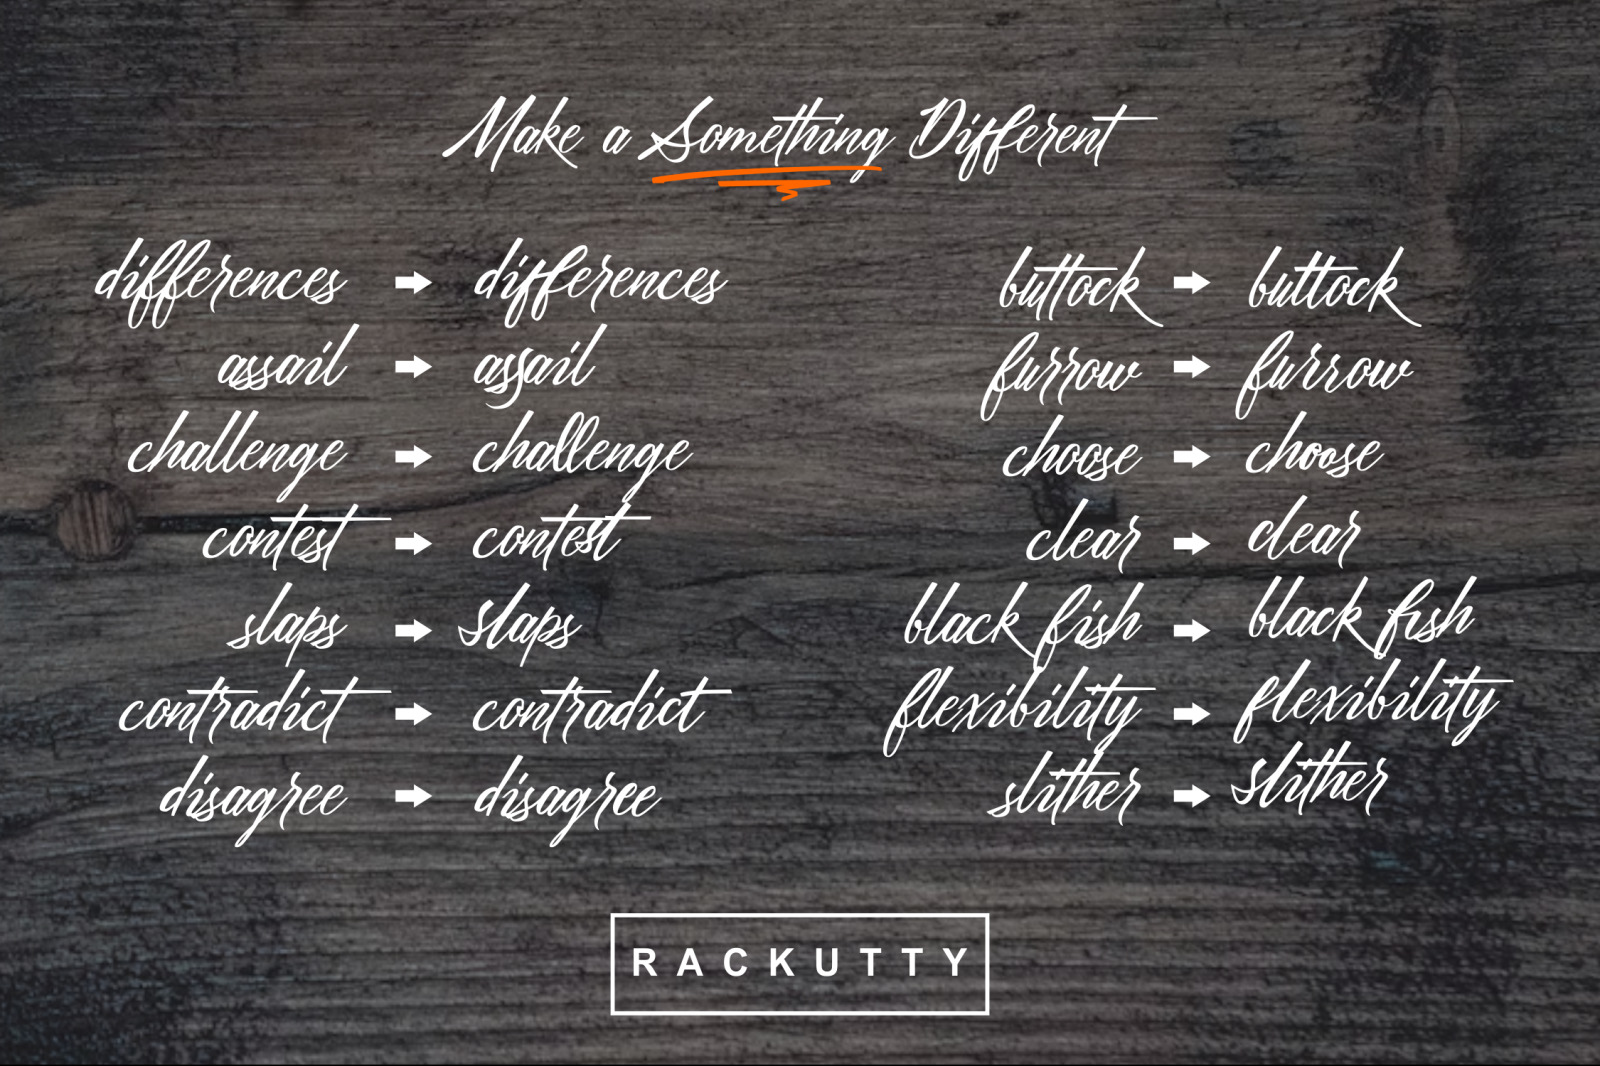 Make a Something Different
differences ➡ differences
assail ➡ assail
challenge ➡ challenge
contest ➡ contest
slaps ➡ slaps
contradict ➡ contradict
disagree ➡ disagree
buttock ➡ buttock
furrow ➡ furrow
choose ➡ choose
clear ➡ clear
black fish ➡ black fish
flexibility ➡ flexibility
slither ➡ slither
RACKUTTY